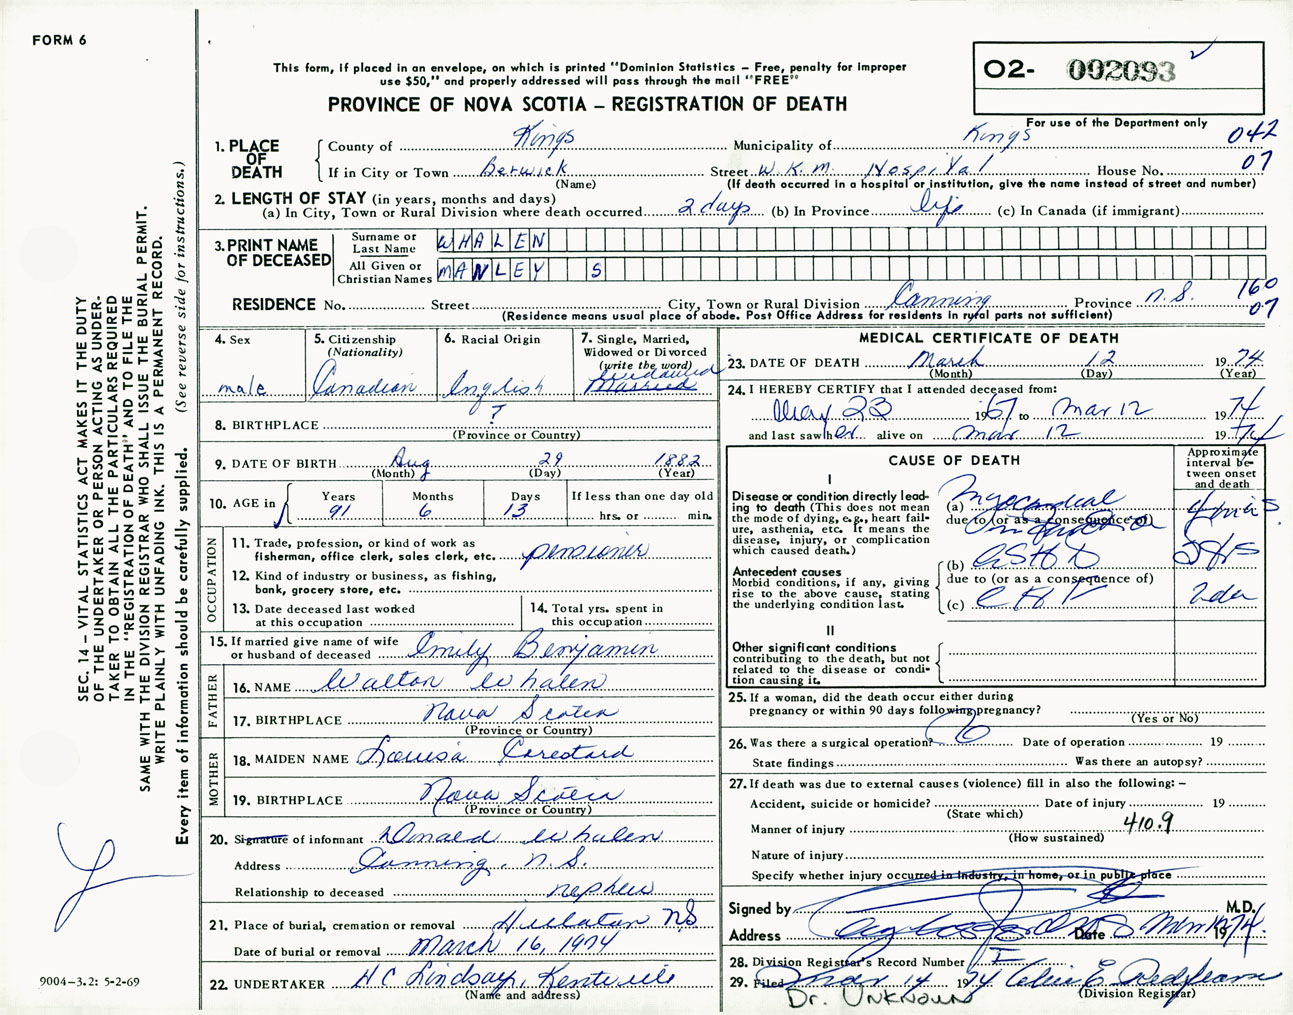 FORM 6
This form, if placed in an envelope, on which is printed "Dominion Statistics – Free, penalty for improper
use $50," and properly addressed will pass through the mail "FREE"
PROVINCE OF NOVA SCOTIA – REGISTRATION OF DEATH
02- 002093
For use of the Department only
1. PLACE OF DEATH
County of Kings Municipality of Kings 042
If in City or Town Berwick Street W.K.M. Hospital House No. 07
(Name) (If death occurred in a hospital or institution, give the name instead of street and number)
2. LENGTH OF STAY (in years, months and days)
(a) In City, Town or Rural Division where death occurred 2 days (b) In Province life (c) In Canada (if immigrant)
3. PRINT NAME OF DECEASED
Surname or Last Name WHALEN
All Given or Christian Names MANLEY S
RESIDENCE No. Street City, Town or Rural Division Canning Province N.S. 160
07
(Residence means usual place of abode. Post Office Address for residents in rural parts not sufficient)
4. Sex
male
5. Citizenship
(Nationality)
Canadian
6. Racial Origin
English
7. Single, Married,
Widowed or Divorced
(write the word)
Widowed
Married
8. BIRTHPLACE ?
(Province or Country)
9. DATE OF BIRTH Aug 29 1882
(Month) (Day) (Year)
10. AGE in
Years Months Days If less than one day old
91 6 13 hrs. or min.
OCCUPATION
11. Trade, profession, or kind of work as
fisherman, office clerk, sales clerk, etc. pensioner
12. Kind of industry or business, as fishing,
bank, grocery store, etc.
13. Date deceased last worked
at this occupation
14. Total yrs. spent in
this occupation
15. If married give name of wife
or husband of deceased Emily Benjamin
FATHER
16. NAME Walton Whalen
17. BIRTHPLACE Nova Scotia
(Province or Country)
MOTHER
18. MAIDEN NAME Louisa
19. BIRTHPLACE Nova Scotia
(Province or Country)
20. Signature of informant Donald Whalen
Address Canning, N.S.
Relationship to deceased nephew
21. Place of burial, cremation or removal Hillaton NS
Date of burial or removal March 16, 1974
22. UNDERTAKER H C Lindsay, Kentville
(Name and address)
MEDICAL CERTIFICATE OF DEATH
23. DATE OF DEATH March 12 1974
(Month) (Day) (Year)
24. I HEREBY CERTIFY that I attended deceased from:
May 23 1967 to Mar 12 1974
and last saw h er alive on Mar 12 1974
CAUSE OF DEATH
Approximate
interval be-
tween onset
and death
I
Disease or condition directly lead-
ing to death (This does not mean
the mode of dying, e.g., heart fail-
ure, asthenia, etc. It means the
disease, injury, or complication
which caused death.)
(a) Myocardial
due to (or as a consequence of)
infarction
(b) ASHD
Antecedent causes
Morbid conditions, if any, giving
rise to the above cause, stating
the underlying condition last.
due to (or as a consequence of)
(c)
II
Other significant conditions
contributing to the death, but not
related to the disease or condi-
tion causing it.
25. If a woman, did the death occur either during
pregnancy or within 90 days following pregnancy?
(Yes or No)
26. Was there a surgical operation? Date of operation 19
State findings Was there an autopsy?
27. If death was due to external causes (violence) fill in also the following: –
Accident, suicide or homicide? Date of injury 19
(State which)
Manner of injury 410.9
(How sustained)
Nature of injury
Specify whether injury occurred in industry, in home, or in public place
Signed by M.D.
Address Date 1974
28. Division Registrar's Record Number
29. Filed Mar 14 1974
(Division Registrar)
Dr. UNKNOWN
SEC. 14 – VITAL STATISTICS ACT MAKES IT THE DUTY
OF THE UNDERTAKER OR PERSON ACTING AS UNDER-
TAKER TO OBTAIN ALL THE PARTICULARS REQUIRED
IN THE "REGISTRATION OF DEATH" AND TO FILE THE
SAME WITH THE DIVISION REGISTRAR WHO SHALL ISSUE THE BURIAL PERMIT.
WRITE PLAINLY WITH UNFADING INK. THIS IS A PERMANENT RECORD.
Every item of information should be carefully supplied. (See reverse side for instructions.)
9004–3.2: 5-2-69